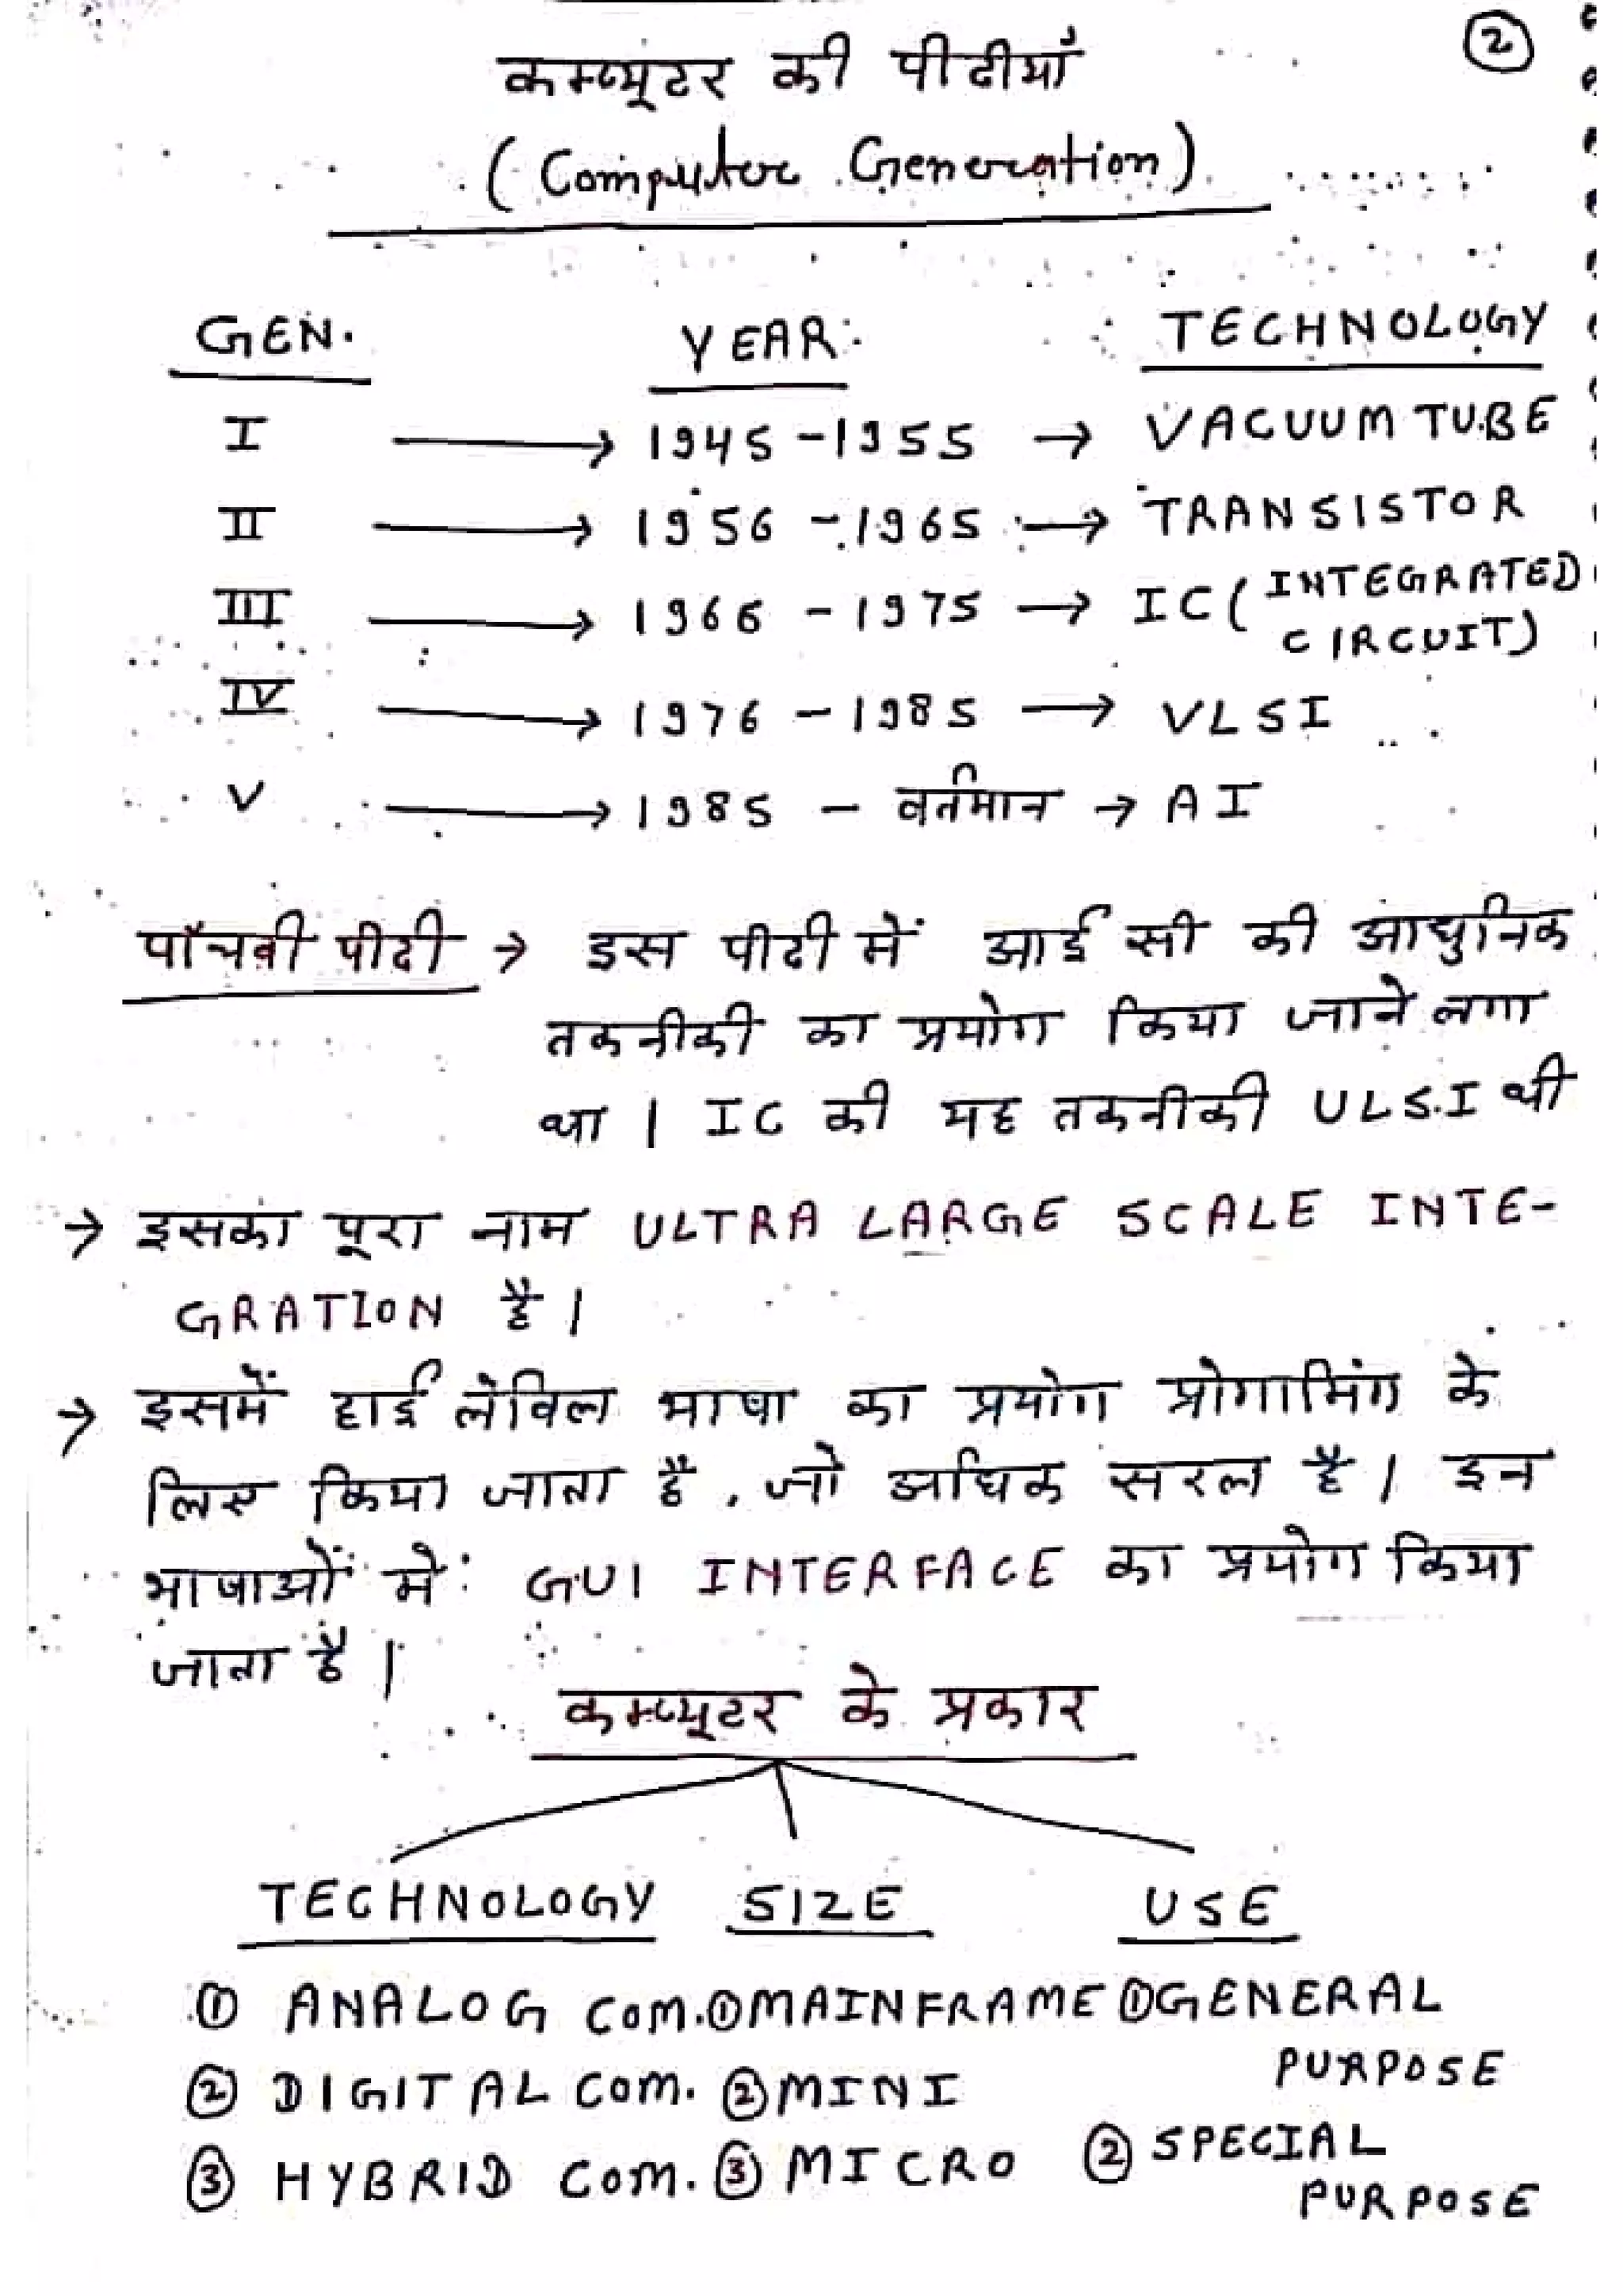 ②
कम्प्यूटर की पीढीयाँ
(Computer Generation)
GEN. YEAR: TECHNOLOGY
I → 1945 - 1955 → VACUUM TUBE
II → 1956 - 1965 → TRANSISTOR
III → 1966 - 1975 → IC (INTEGRATED
CIRCUIT)
IV → 1976 - 1985 → VLSI
V → 1985 - वर्तमान → AI
पाँचवी पीढी → इस पीढी में आई सी की आधुनिक
तकनीकी का प्रयोग किया जाने लगा
था | IC की यह तकनीकी ULS.I थी
→ इसका पूरा नाम ULTRA LARGE SCALE INTE-
GRATION है |
→ इसमें हाई लेविल भाषा का प्रयोग प्रोगामिंग के
लिए किया जाता है , जो अधिक सरल है | इन
भाषाओं में GUI INTERFACE का प्रयोग किया
जाता है |
कम्प्यूटर के प्रकार
TECHNOLOGY SIZE USE
① ANALOG COM. ① MAINFRAME ① GENERAL
PURPOSE
② DIGITAL COM. ② MINI
② SPECIAL
③ HYBRID COM. ③ MICRO
PURPOSE